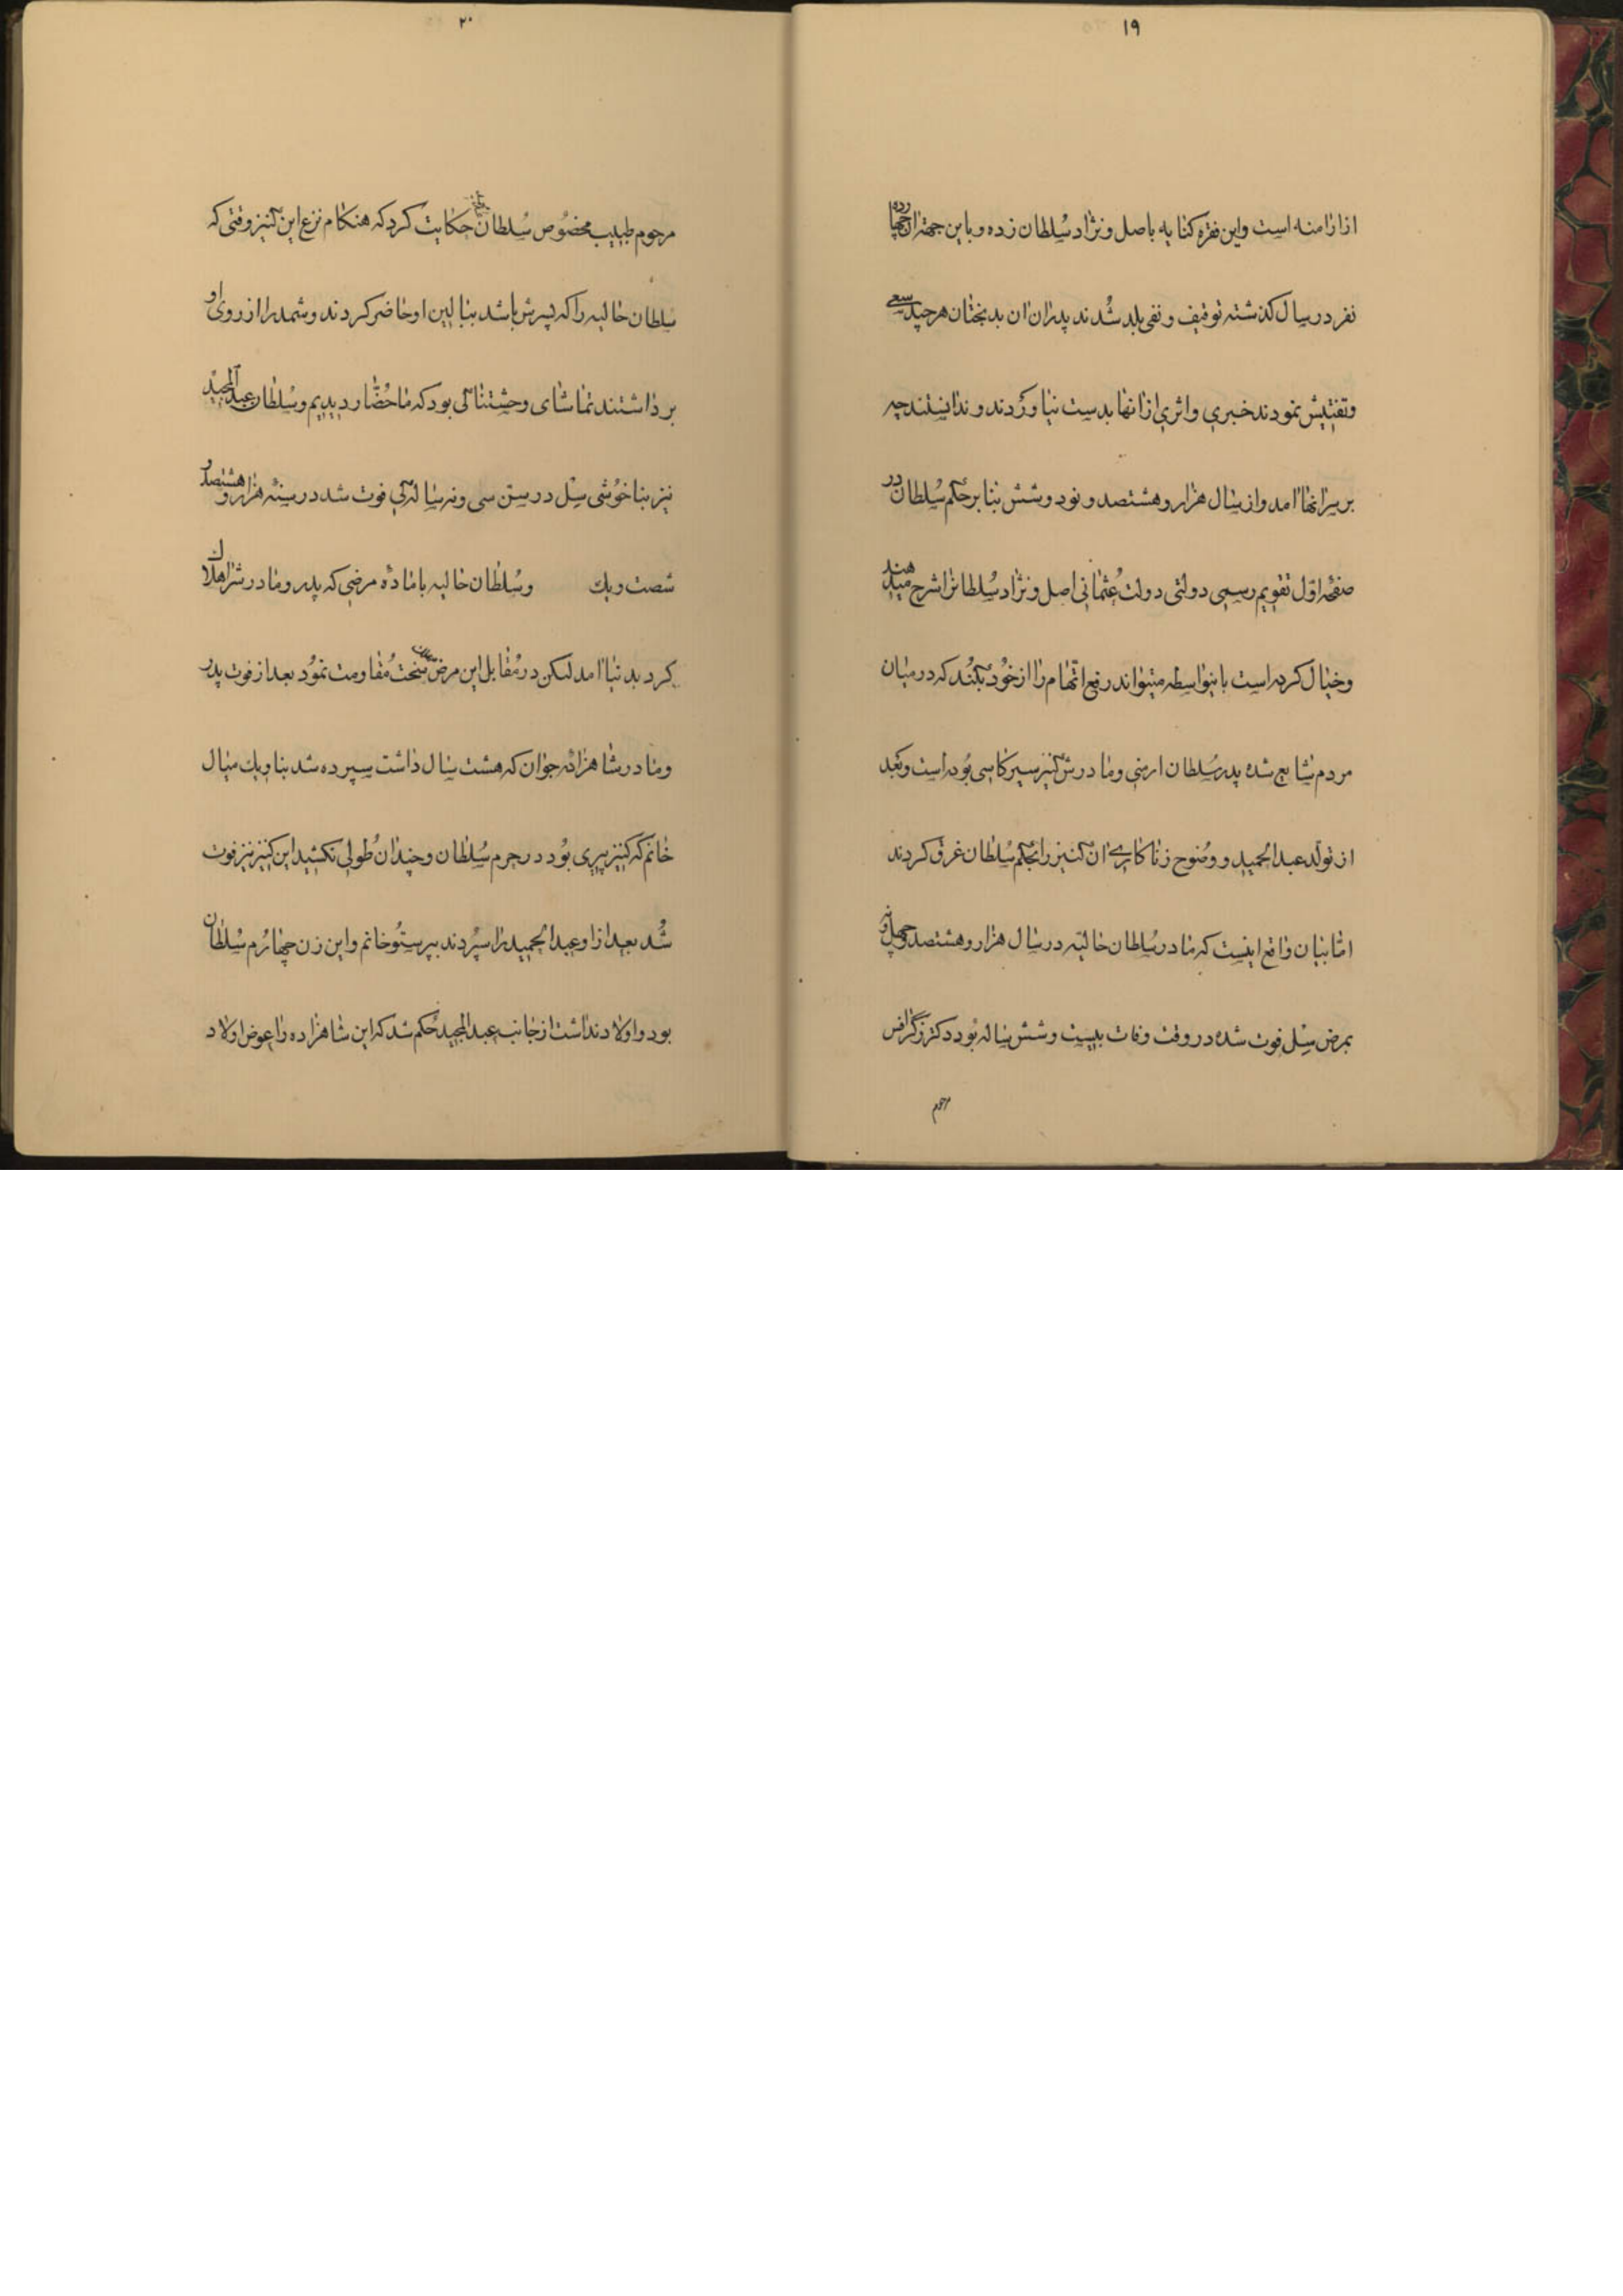 ۱۹
از ارامنه است واین فقره کنایه باصل ونژاد سُلطان زده وباین جهة ان چهارده
نفر در سال کذشته توقیف ونفی بلد شُدند پدران ان بدبختان هرچند سعی
وتفتیش نمودند خبری واثری از انها بدست نیاوردند وندانستند چه
بر سر انها امد واز سال هزار وهشتصد ونود وشش بنا بر حکم سُلطان در
صفحه اوّل تقویم رسمی دولتی دولت عُثمانی اصل ونژاد سُلطانرا شرح میدهند
وخیال کرده است باینواسطه میتواند رفع اتّهام را از خُود بکُند که در میان
مردم شایع شده پدر سُلطان ارمنی ومادرش کنیز سیرکاسی بُوده است وبَعد
از تولّد عبد الحمید و وضُوح زناکاری ان کنیز را بحکم سُلطان غرق کردند
امّا بیان واقع اینست که مادر سُلطان حالیّه در سال هزار وهشتصد وچهل ونه
بمرض سِل فوت شده در وقت وفات بیست وشش ساله بُود دکتر زگرافس
مرحوم
۲۰
مرحوم طبیب مخصُوص سُلطان حکایت کرد که هنکام نزع این کنیز وقتی که
سلطان حالیه را که پسرش باشد ببالین او حاضر کردند وشمد را از روی او
برداشتند تماشای وحشتناکی بود که ما حُضّار دیدیم وسُلطان عبد المجید
نیز بناخُوشی سِل در سن سی ونه سالکی فوت شد در سنهٔ هزار وهشتصد و
شصت ویك وسُلطان حالیه با مادّه مرضی که پدر ومادرش را هلاك
کرد بدنیا امد لیکن در مُقابل این مرض سخت مُقاومت نمُود بعد از فوت پدر
ومادر شاهزادهٔ جوان که هشت سال داشت سپرده شد بناویك میال
خانم که کنیز پیری بُود در حرم سُلطان وچندان طُولی نکشید این کنیز نیز فوت
شُد بعد از او عبد الحمید را سپُردند بپرستُو خانم واین زن چهارُم سُلطان
بود واولاد نداشت از جانب عبد المجید حُکم شد که این شاهزاده را عوض اولاد